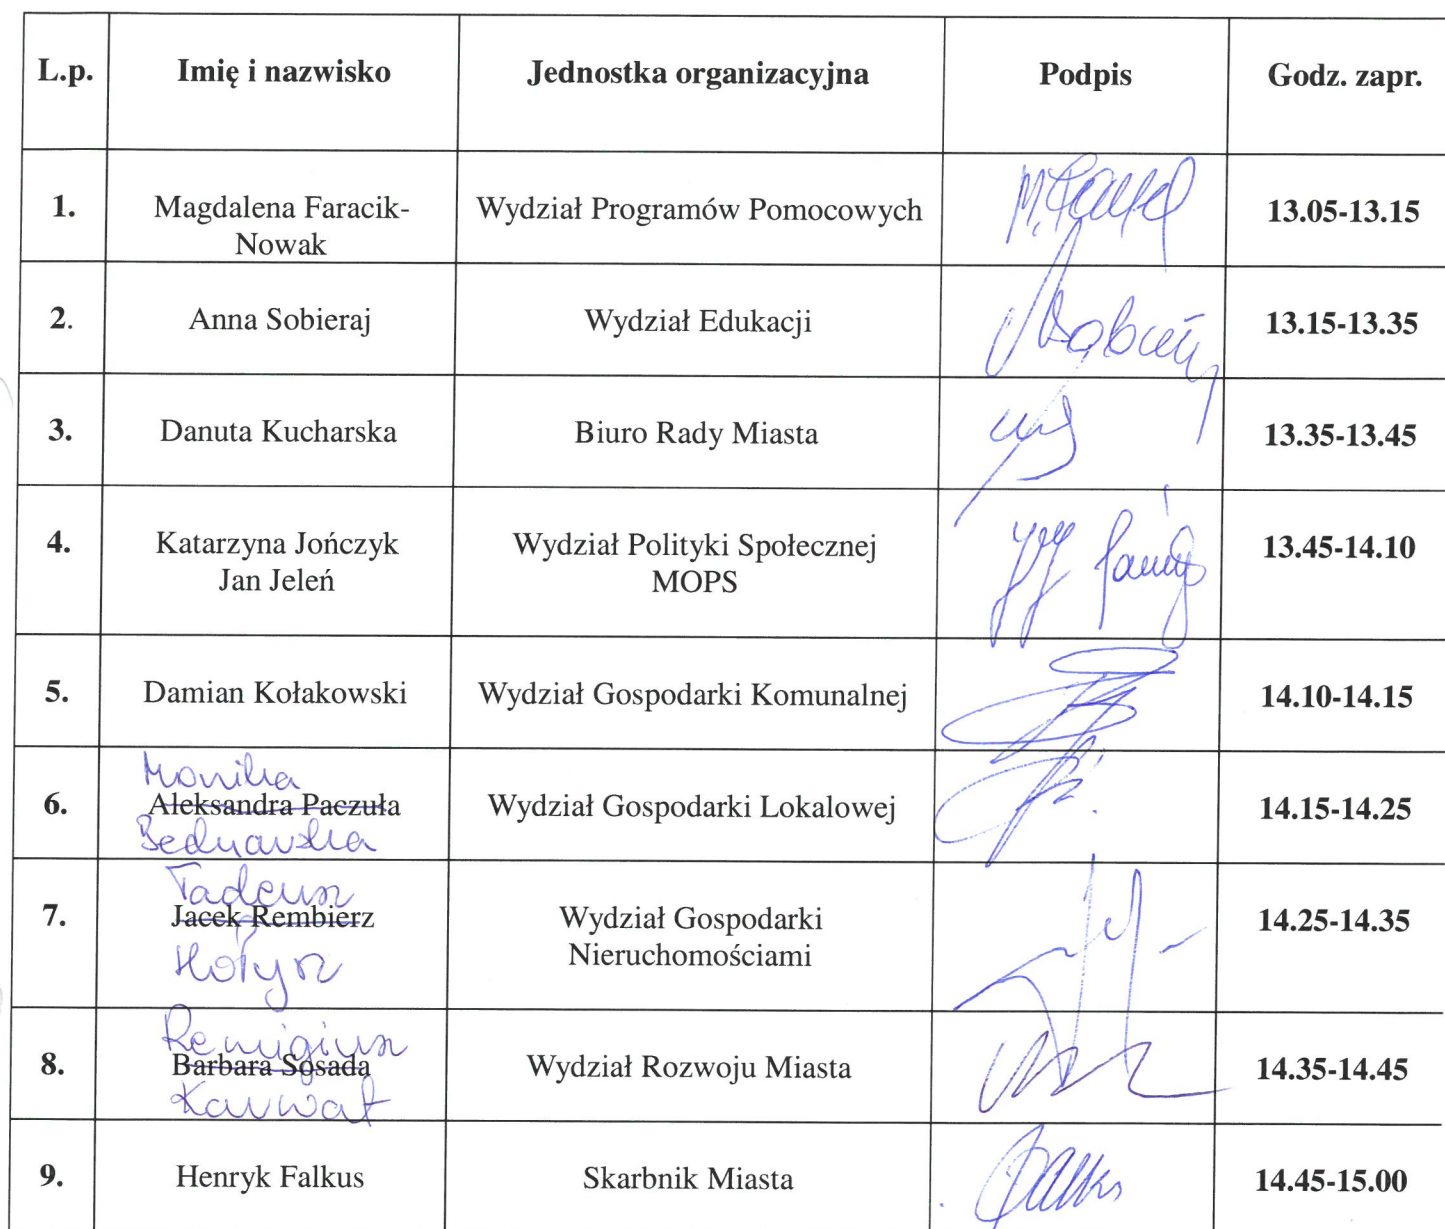 L.p. Imię i nazwisko Jednostka organizacyjna Podpis Godz. zapr.
1. Magdalena Faracik- Wydział Programów Pomocowych 13.05-13.15
Nowak
2. Anna Sobieraj Wydział Edukacji 13.15-13.35
3. Danuta Kucharska Biuro Rady Miasta 13.35-13.45
4. Katarzyna Jończyk Wydział Polityki Społecznej 13.45-14.10
Jan Jeleń MOPS
5. Damian Kołakowski Wydział Gospodarki Komunalnej 14.10-14.15
Monika
6. Aleksandra Paczuła Wydział Gospodarki Lokalowej 14.15-14.25
Bednarska
Tadeusz
7. Jacek Rembierz Wydział Gospodarki 14.25-14.35
Nieruchomościami
Hołysz
Remigiusz
8. Barbara Sosada Wydział Rozwoju Miasta 14.35-14.45
Karwat
9. Henryk Falkus Skarbnik Miasta 14.45-15.00